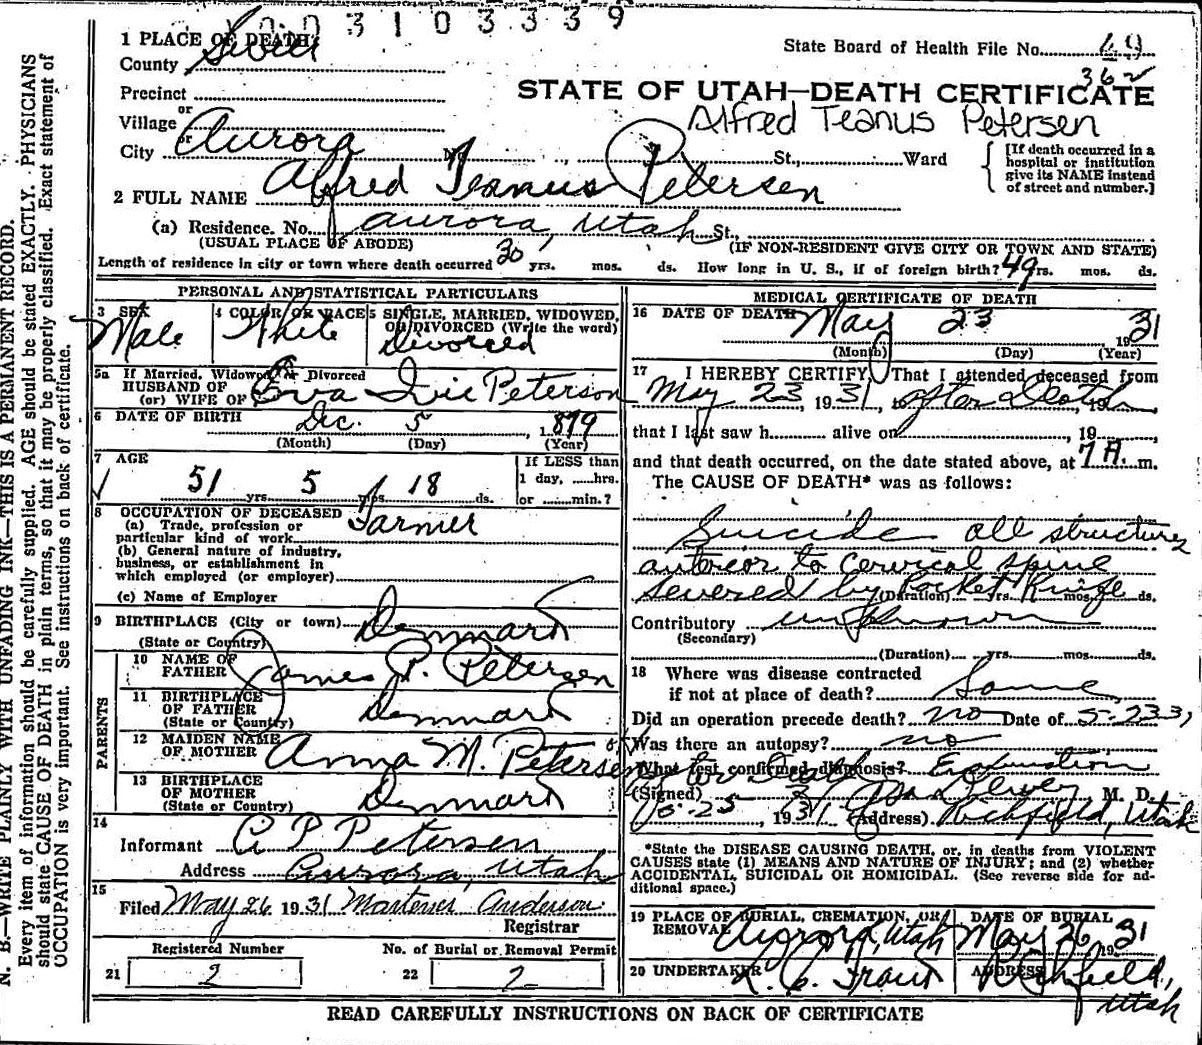 003103339
1 PLACE OF DEATH
County Sevier
State Board of Health File No. 69
362
Precinct
or
Village
or
City Aurora No. St., Ward
STATE OF UTAH—DEATH CERTIFICATE
Alfred Teanus Petersen
[If death occurred in a hospital or institution give its NAME instead of street and number.]
2 FULL NAME Alfred Teanus Petersen
(a) Residence. No. Aurora, Utah St.,
(USUAL PLACE OF ABODE) (IF NON-RESIDENT GIVE CITY OR TOWN AND STATE)
Length of residence in city or town where death occurred 30 yrs. mos. ds. How long in U. S., if of foreign birth? 49 yrs. mos. ds.
PERSONAL AND STATISTICAL PARTICULARS
3 SEX Male
4 COLOR OR RACE White
5 SINGLE, MARRIED, WIDOWED, OR DIVORCED (Write the word) Divorced
5a If Married, Widowed or Divorced
HUSBAND OF
(or) WIFE OF Eva Ivie Peterson
6 DATE OF BIRTH Dec. 5, 1879
(Month) (Day) (Year)
7 AGE
51 yrs. 5 mos. 18 ds.
If LESS than
1 day, ......hrs.
or ......min.?
8 OCCUPATION OF DECEASED
(a) Trade, profession or
particular kind of work Farmer
(b) General nature of industry,
business, or establishment in
which employed (or employer)
(c) Name of Employer
9 BIRTHPLACE (City or town) Denmark
(State or Country)
PARENTS
10 NAME OF
FATHER James P. Petersen
11 BIRTHPLACE
OF FATHER Denmark
(State or Country)
12 MAIDEN NAME
OF MOTHER Anna M. Petersen
13 BIRTHPLACE
OF MOTHER Denmark
(State or Country)
14
Informant A P Petersen
Address Aurora, Utah
15
Filed May 26 1931 Anderson
Registrar
Registered Number
21 2
No. of Burial or Removal Permit
22 2
MEDICAL CERTIFICATE OF DEATH
16 DATE OF DEATH May 23 1931
(Month) (Day) (Year)
17 I HEREBY CERTIFY, That I attended deceased from
May 23, 1931, to after Death, 19
that I last saw h alive on , 19
and that death occurred, on the date stated above, at 7 A. m.
The CAUSE OF DEATH* was as follows:
Suicide all structures
anterior to cervical spine
severed by Pocket Knife
(Duration) yrs. mos. ds.
Contributory unknown
(Secondary)
(Duration) yrs. mos. ds.
18 Where was disease contracted
if not at place of death? Same
Did an operation precede death? no Date of 5-23-31
Was there an autopsy? no
What test confirmed diagnosis?
(Signed) M. D.
5-25, 1931 (Address) Richfield, Utah
*State the DISEASE CAUSING DEATH, or, in deaths from VIOLENT
CAUSES state (1) MEANS AND NATURE OF INJURY; and (2) whether
ACCIDENTAL, SUICIDAL OR HOMICIDAL. (See reverse side for ad-
ditional space.)
19 PLACE OF BURIAL, CREMATION, OR
REMOVAL Aurora, Utah
DATE OF BURIAL
May 26 1931
20 UNDERTAKER
ADDRESS
Richfield,
Utah
READ CAREFULLY INSTRUCTIONS ON BACK OF CERTIFICATE
N. B.—WRITE PLAINLY WITH UNFADING INK—THIS IS A PERMANENT RECORD.
Every item of information should be carefully supplied. AGE should be stated EXACTLY. PHYSICIANS
should state CAUSE OF DEATH in plain terms, so that it may be properly classified. Exact statement of
OCCUPATION is very important. See instructions on back of certificate.